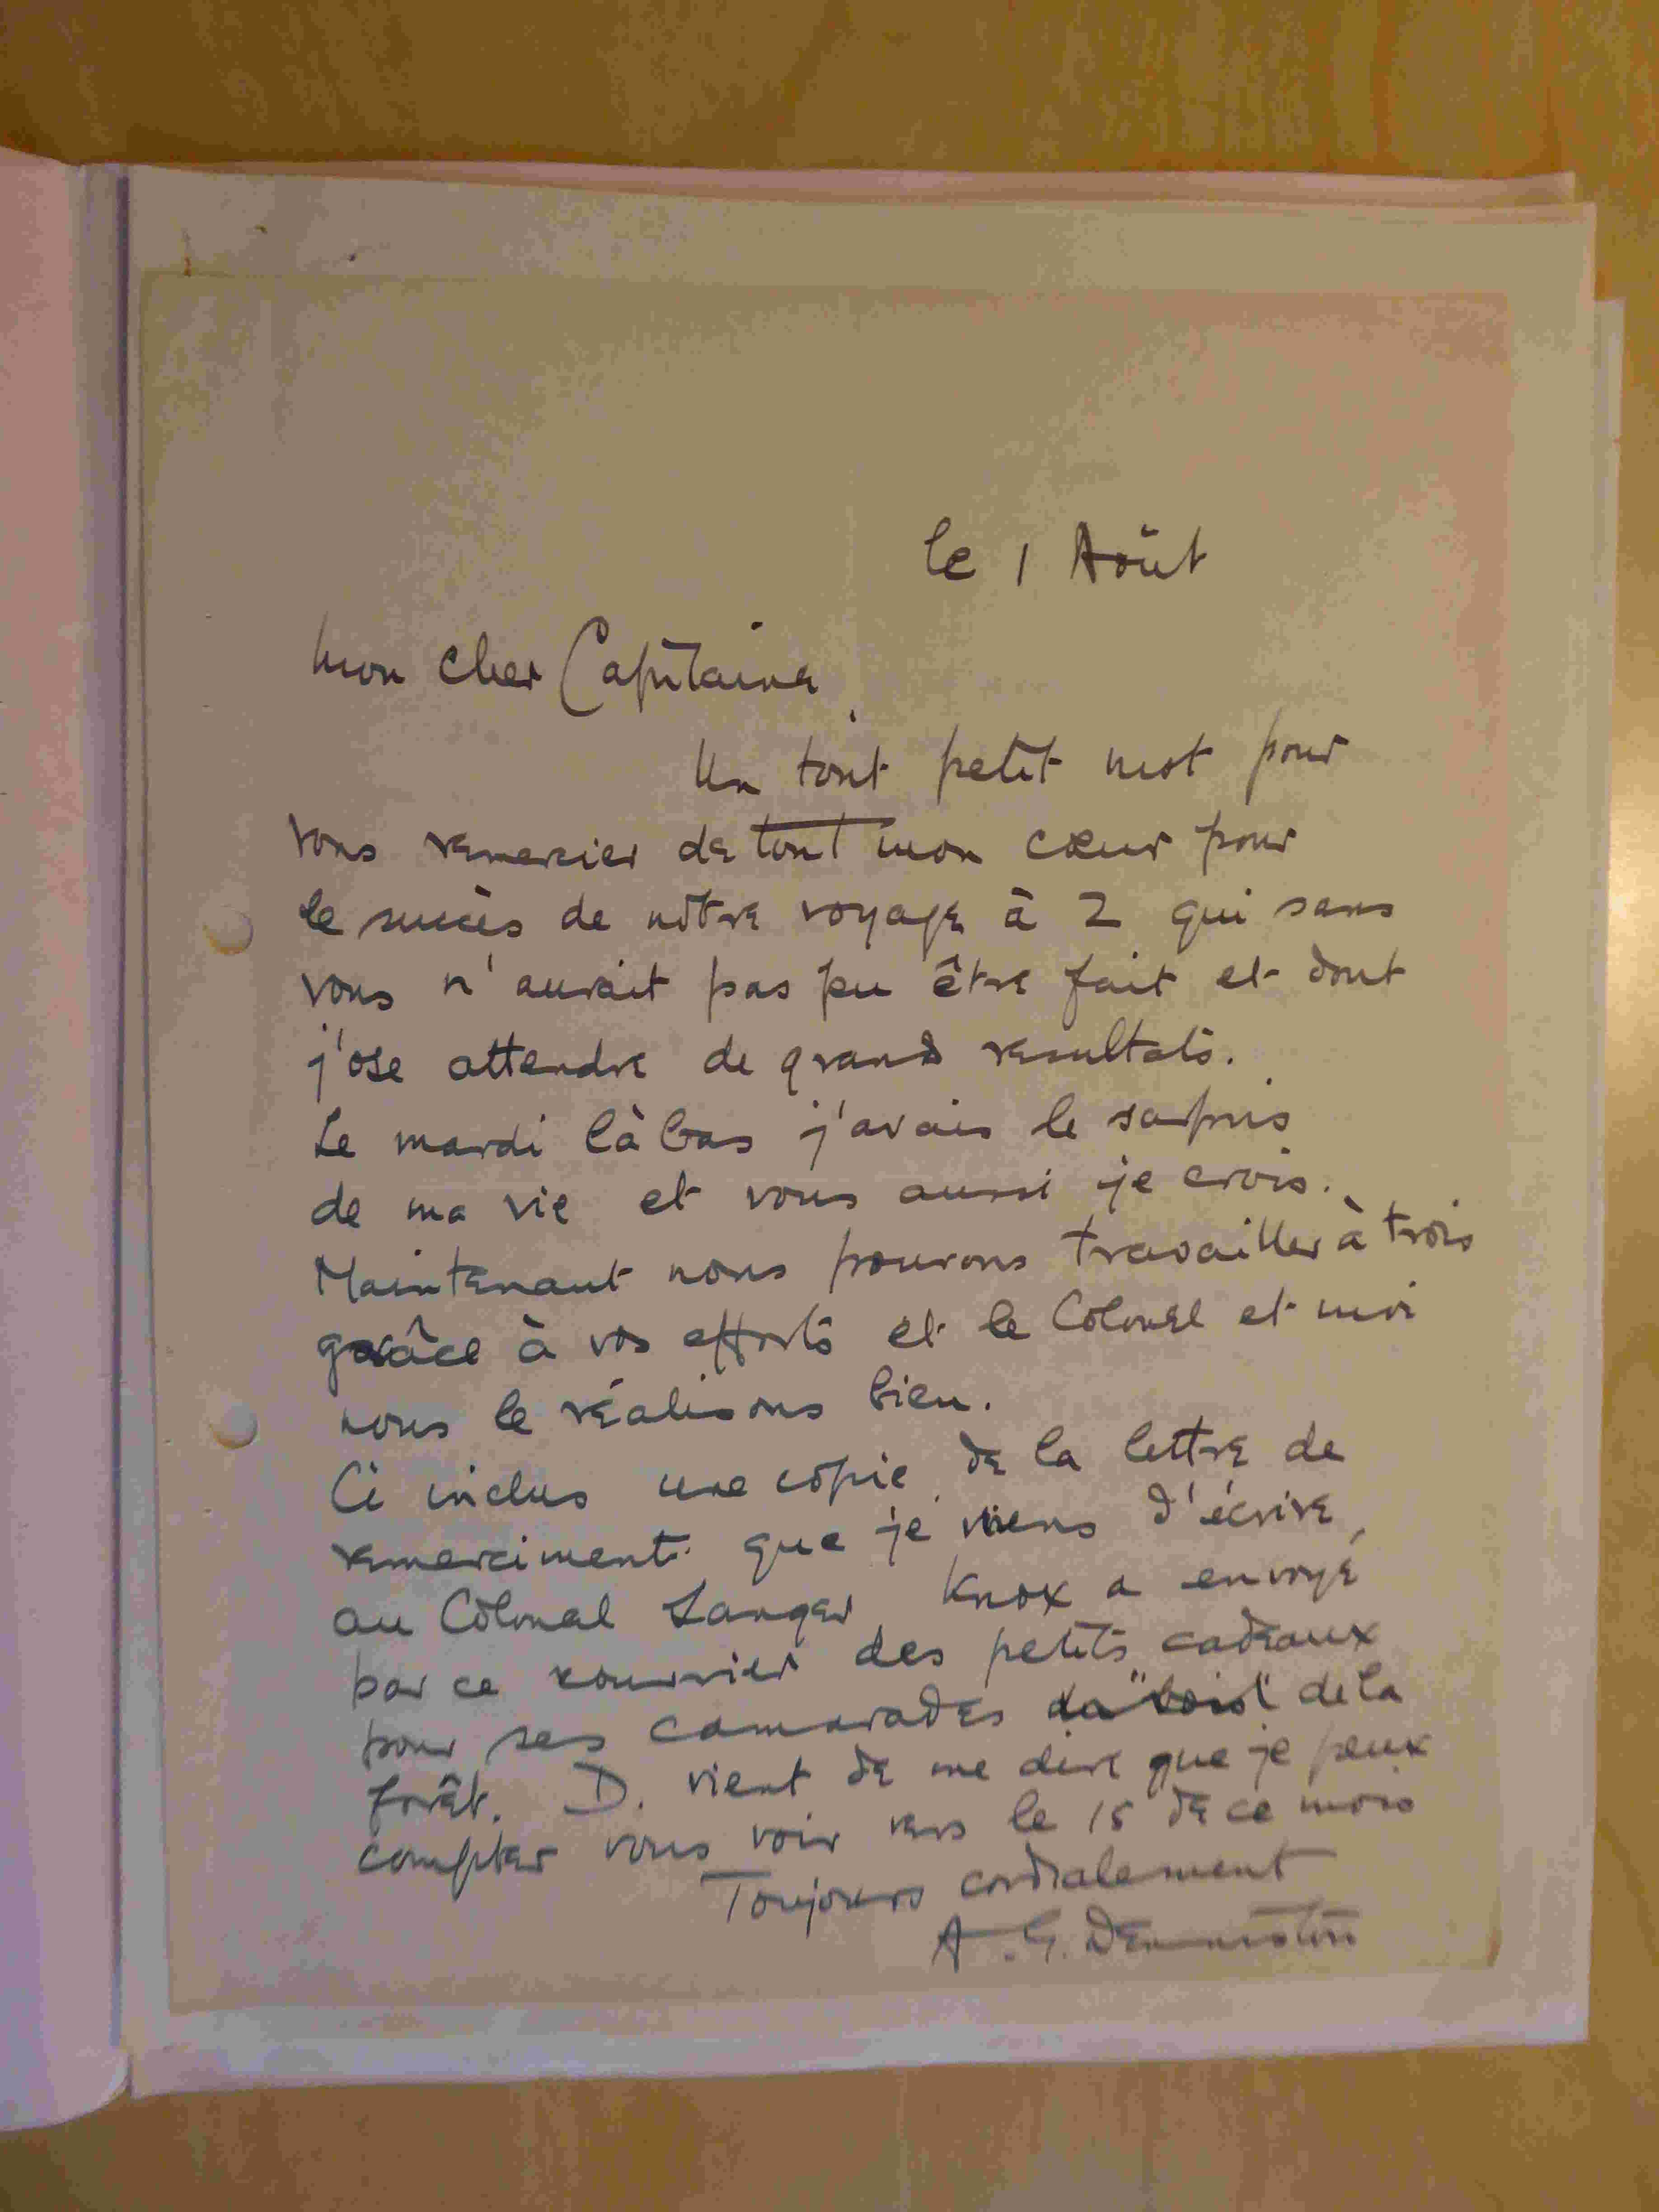 le 1 Août
Mon cher Capitaine
Un tout petit mot pour
vous remercier de tout mon cœur pour
le succès de nôtre voyage à 2 qui sans
vous n'aurait pas pu être fait et dont
j'ose attendre de grands resultats.
Le mardi là bas j'avais le surpris
de ma vie et vous aussi je crois.
Maintenant nous pouvons travailler à trois
grâce à vos efforts et le Colonel et moi
nous le réalisons bien.
Ci inclus une copie de la lettre de
remerciment que je viens d'écrire
au Colonel Langer. Knox a envoyé
par ce courrier des petits cadeaux
pour ses camarades de la
forêt. D. vient de me dire que je peux
compter vous voir vers le 15 de ce mois
Toujours cordialement
A.G. Denniston